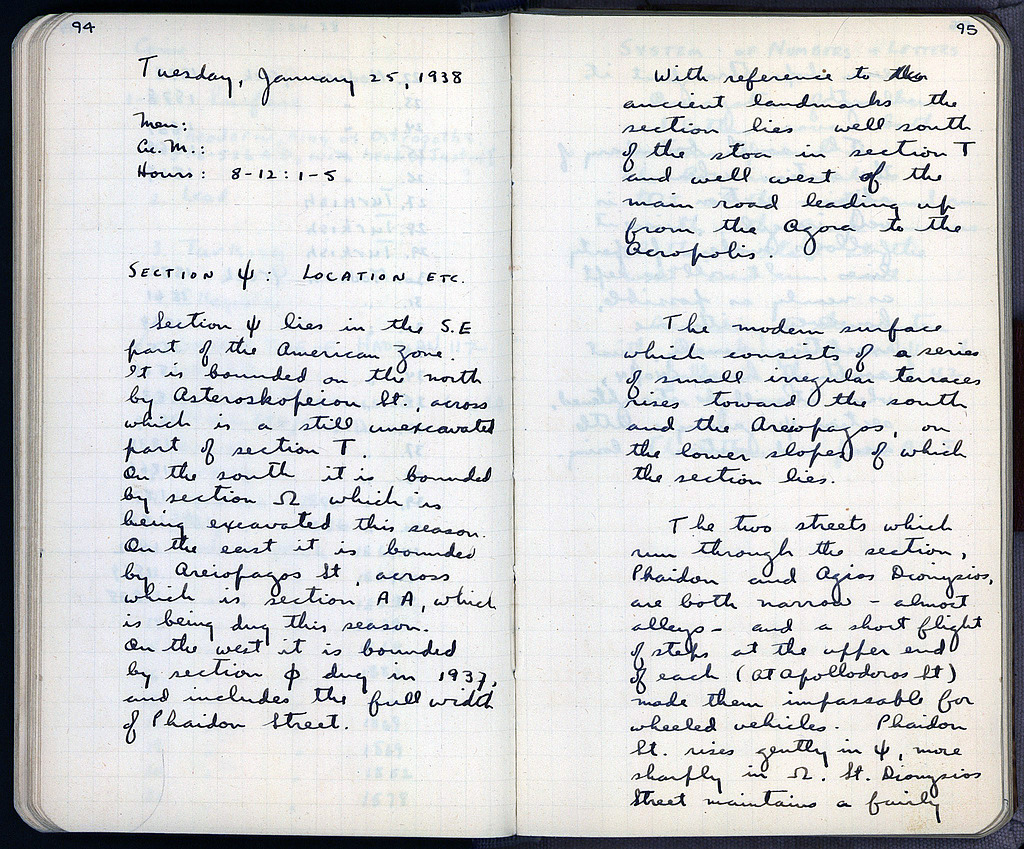 94
Tuesday, January 25, 1938
Men:
Cu. M.:
Hours: 8-12: 1-5
SECTION ψ: LOCATION ETC.
Section ψ lies in the S.E
part of the American Zone.
It is bounded on the north
by Asteroskopeion St., across
which is a still unexcavated
part of section T
On the south it is bounded
by section Ω which is
being excavated this season.
On the east it is bounded
by Areiopagos St, across
which is section AA, which
is being dug this season.
On the west it is bounded
by section φ dug in 1937,
and includes the full width
of Phaidon Street.
95
With reference to
ancient landmarks the
section lies well south
of the stoa in section T
and well west of the
main road leading up
from the Agora to the
Acropolis.
The modern surface
which consists of a series
of small irregular terraces
rises toward the south
and the Areiopagos, on
the lower slopes of which
the section lies.
The two streets which
run through the section,
Phaidon and Agios Dionysios,
are both narrow - almost
alleys - and a short flight
of steps at the upper end
of each (at Apollodoros St)
made them impassable for
wheeled vehicles. Phaidon
St. rises gently in ψ, more
sharply in Ω. St. Dionysios
Street maintains a fairly